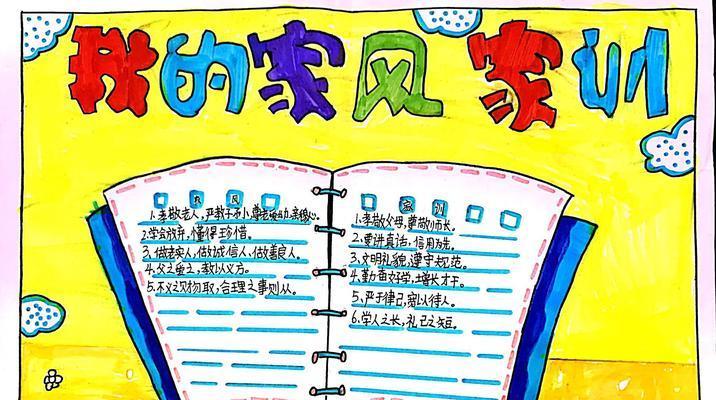 我的家风家训
家风
1.孝敬老人,严教子
2.学会放弃,懂得珍惜。
3.做老实人,做诚信人,做善良人。
4.父之爱之,教以义方。
5.不义之取,合理之事则从。
家训
1.孝敬父母,尊敬师长。
2.要讲真话,信用为先。
3.文明礼貌,遵守规范。
4.勤奋好学,增长才干。
5.严于律己,宽以待人。
6.学人之长,礼己之短。